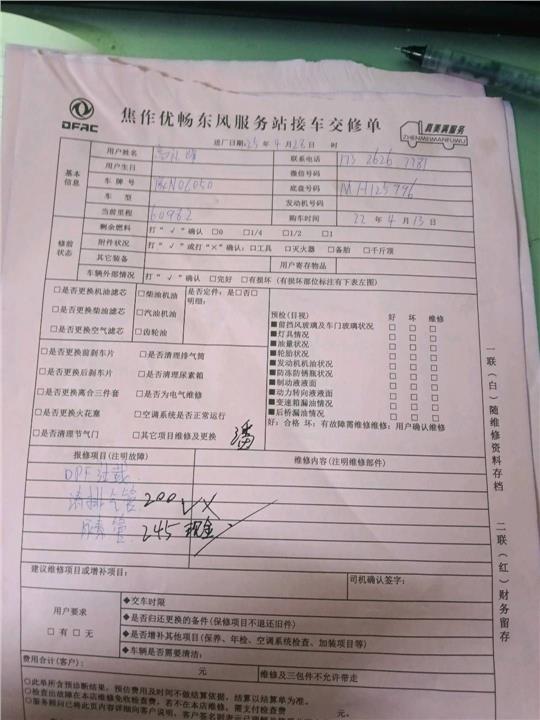 DFAC
焦作优畅东风服务站接车交修单
真美满服务
ZHENMEIMANFUWU
进厂日期:25年 4月 28日 时
基本信息
用户姓名 联系电话 173 2626 7781
用户生日 微信号码
车 牌 号 底盘号码 MH125796
车 型 发动机号码
当前里程 60982 购车时间 22年 4月 13日
修前状态
剩余燃料 打“√”确认 □0 □1/4 □1/2 □1
附件状况 打“√”或打“×”确认:□工具 □灭火器 □备胎 □千斤顶
其它装备 用户寄存物品
车辆外部情况 打“√”确认 □完好 □有损坏 (有损坏部位标注有下表左图)
□是否更换机油滤芯 □柴油机油 是否定件:是□否□
□是否更换柴油滤芯 □汽油机油 明细:
□是否更换空气滤芯 □齿轮油
□是否更换前刹车片 □是否清理排气筒
□是否更换后刹车片 □是否清理尿素箱
□是否更换离合三件套 □是否为电气维修
□是否更换火花塞 □空调系统是否正常运行
□是否清理节气门 □其它项目维修及更换
潘
预检(目视) 好 坏 维修
■前挡风玻璃及车门玻璃状况 □ □ □
■灯具情况 □ □ □
■油量状况 □ □ □
■轮胎状况 □ □ □
■发动机机油状况 □ □ □
■防冻防锈瓶状况 □ □ □
■制动液液面 □ □ □
■动力转向液液面 □ □ □
■变速箱漏油情况 □ □ □
■后桥漏油情况 □ □ □
好:合格 坏:有故障需维修维修:用户确认维修
报修项目(注明故障) 维修内容(注明维修部件)
DPF过载
清排气管 200 VX
尿素管 245 现金
建议维修项目或增补项目: 司机确认签字:
用户要求
□有 □无
◆交车时限
◆是否归还更换的备件(保修项目不退还旧件)
◆是否增补其他项目(保养、年检、空调系统检查、加装项目等)
◆车辆是否需要清洁:
费用合计(客户): 元 维修及三包件不允许带走
◇此单所含预诊断结果,预估费用及时间不做结算依据,结算以结算单为准。
◇检查出故障在本店维修免收检查费,若不在本店维修,需支付检查费 元
一联(白)随维修资料存档
二联(红)财务留存